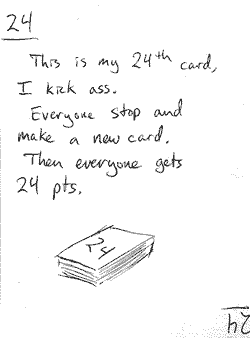 24
This is my 24th card,
I kick ass.
Everyone stop and
make a new card.
Then everyone gets
24 pts.
24
24